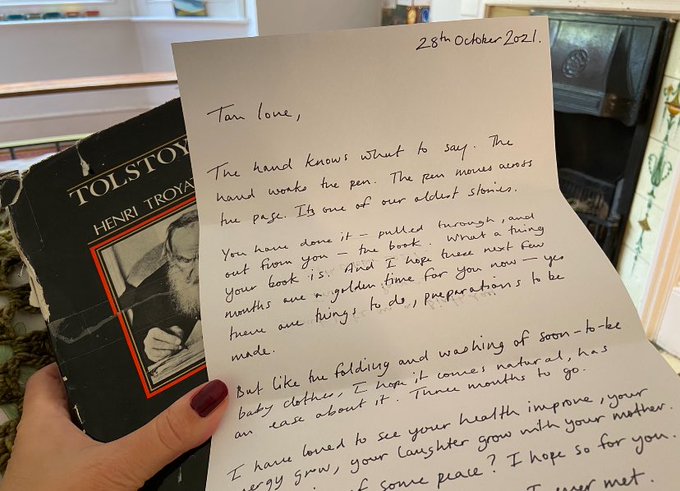 TOLSTOY
HENRI TROYA
28th October 2021.
Tan love,
The hand knows what to say. The
hand works the pen. The pen moves across
the page. Its one of our oldest stories.
You have done it – pulled through, and
out from you – the book. What a thing
your book is. And I hope these next few
months are a golden time for you now – yes
there are things to do, preparations to be
made.
But like the folding and washing of soon-to-be
baby clothes, I hope it comes natural, has
an ease about it. Three months to go.
I have loved to see your health improve, your
energy grow, your laughter grow with your mother.
of some peace? I hope so for you.
I ever met.